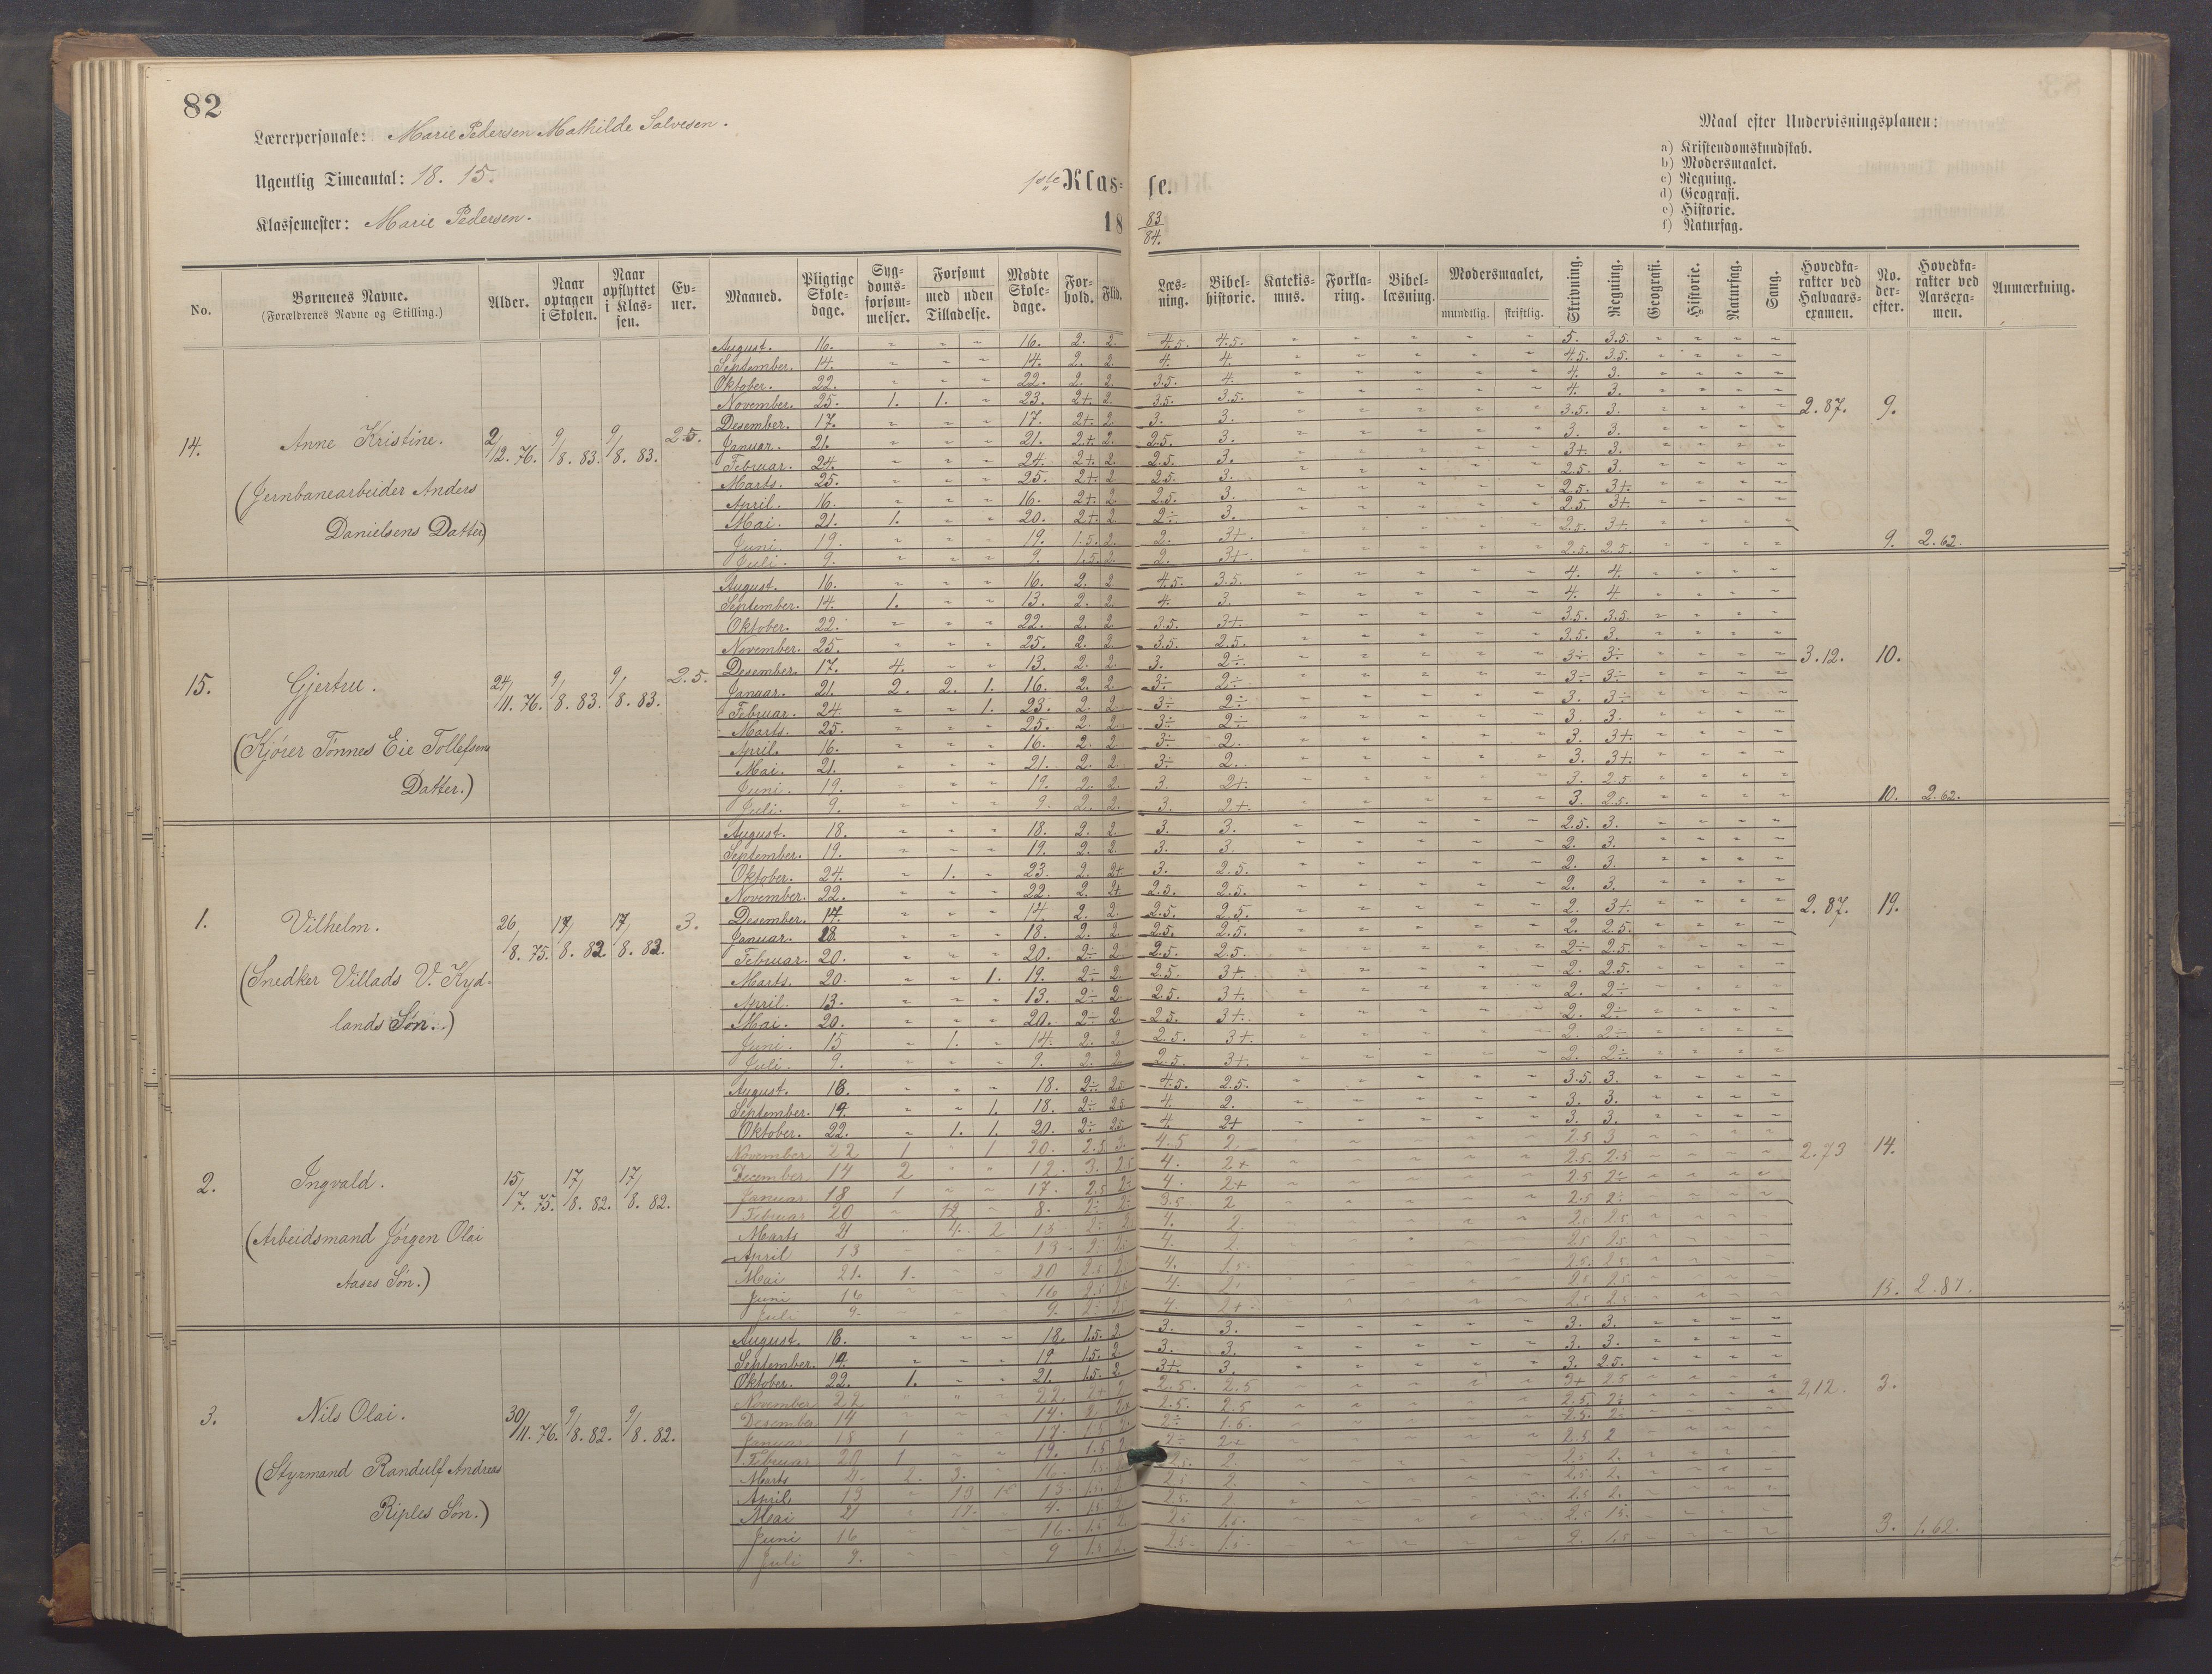 82
Lærerpersonale: Marie Pedersen Mathilde Salvesen.
Ugentlig Timeantal: 18. 15.
Klassemester: Marie Pedersen.
1ste Klas- se.
18 83/84.
Maal efter Undervisningsplanen:
a) Kristendomskundskab.
b) Modersmaalet.
c) Regning.
d) Geografi.
e) Historie.
f) Naturfag.
No. Børnenes Navne. (Forældrenes Navne og Stilling.) Alder. Naar optagen i Skolen. Naar opflyttet i Klassen. Evner. Maaned. Pligtige Skoledage. Sygdomsforsømmelser. Forsømt med uden Tilladelse. Mødte Skoledage. Forhold. Flid. Læsning. Bibelhistorie. Katekismus. Forklaring. Bibellæsning. Modersmaalet, mundtlig. skriftlig. Skrivning. Regning. Geografi. Historie. Naturfag. Sang. Hovedkarakter ved Halvaarsexamen. No. derefter. Hovedkarakter ved Aarsexamen. Anmærkning.
14. Anne Kristine. 2/12. 76. 9/8. 83. 9/8. 83. 2.5. 2.87. 9.
(Jernbanearbeider Anders
Danielsens Datter)
9. 2.62.
August. 16. " " " 16. 2. 2. 4.5. 4.5. 5. 3.5.
September. 14. " " " 14. 2. 2. 4. 4. 4.5. 3.5.
Oktober. 22. " " " 22. 2. 2. 3.5. 4. 4. 3.
November. 25. 1. 1. " 23. 2+. 2. 3.5. 3.5. 4. 3.
Desember. 17. " " " 17. 2+. 2. 3. 3. 3.5. 3.
Januar. 21. " " " 21. 2+. 2. 2.5. 3. 3. 3.
Februar. 24. " " " 24. 2+. 2. 2.5. 3. 3+. 3.
Marts. 25. " " " 25. 2+. 2. 2.5. 3. 2.5. 3.
April. 16. " " " 16. 2+. 2. 2.5. 3. 2.5. 3+.
Mai. 21. 1. " " 20. 2+. 2. 2÷ 3. 2.5. 3+.
Juni. 19. " " " 19. 1.5. 2. 2. 3+. 2.5. 3+.
Juli. 9. " " " 9. 1.5. 2. 2. 3+. 2.5. 2.5.
15. Gjertru. 24/11. 76. 9/8. 83. 9/8. 83. 2.5. 3.12. 10.
(Kjører Tønnes Eie Tollefsens
Datter.)
10. 2.62.
August. 16. " " " 16. 2. 2. 4.5. 3.5. 4. 4.
September. 14. 1. " " 13. 2. 2. 4. 3. 4. 4.
Oktober. 22. " " " 22. 2. 2. 3.5. 3+. 3.5. 3.5.
November. 25. " " " 25. 2. 2. 3.5. 2.5. 3.5. 3.
Desember. 17. 4. " " 13. 2. 2. 3. 2÷. 3÷ 3÷
Januar. 21. 2. 2. 1. 16. 2. 2. 3÷ 2÷ 3÷ 3÷
Februar. 24. " " 1. 23. 2. 2. 3÷ 2÷ 3. 3÷
Marts. 25. " " " 25. 2. 2. 3÷ 2÷ 3. 3.
April. 16. " " " 16. 2. 2. 3÷ 2. 3. 3+.
Mai. 21. " " " 21. 2. 2. 3÷ 2. 3. 3+.
Juni. 19. " " " 19. 2. 2. 3. 2+. 3. 2.5.
Juli. 9. " " " 9. 2. 2. 3. 2+. 3. 2.5.
1. Vilhelm. 26/8. 75. 17/8. 82. 17/8. 82. 3. 2.87. 19.
(Snedker Villads V. Kyd-
lands Søn.)
August. 18. " " " 18. 2. 2. 3. 3. 2.5. 3.
September. 19. " " " 19. 2. 2. 3. 3. 2. 3.
Oktober. 24. " 1. " 23. 2. 2+ 3. 2.5. 2. 3.
November. 22. " " " 22. 2. 2+ 2.5. 2.5. 2. 3.
Desember. 14. " " " 14. 2. 2. 2.5. 2.5. 2. 3+.
Januar. 18. " " " 18. 2. 2. 2.5. 2.5. 2. 2.5.
Februar. 20. " " " 20. 2÷ 2. 2.5. 2.5. 2÷ 2.5.
Marts. 20. " " 1. 19. 2÷ 2. 2.5. 3+. 2. 2.5.
April. 13. " " " 13. 2÷ 2. 2.5. 3+. 2. 2÷
Mai. 20. " " " 20. 2÷ 2. 2.5. 3+. 2. 2÷
Juni. 15 " 1. " 14. 2. 2. 2.5. 3+. 2. 2÷
Juli. 9. " " " 9. 2. 2. 2.5. 3+. 2. 2÷.
2. Ingvald. 15/7. 75. 17/8. 82. 17/8. 82. 2.73 14.
(Arbeidsmand Jørgen Olai
Aases Søn.)
15. 2.87.
August. 18. " " " 18. 2÷ 2.5 4.5. 2.5. 3.5. 3.
September. 19. " " 1. 18. 2÷ 2.5 4. 2. 3. 3.
Oktober. 22. " 1. 1. 20. 2÷ 2.5. 4. 2+ 3. 3.
November 22 1 " 1 20. 2.5 3. 4.5 2 2.5 3
December 14 2 " " 12. 3. 2.5 4. 2+ 2.5. 2.5
Januar 18 1 " " 17. 2.5 2÷ 4. 2+ 2.5 2÷
Februar 20 " 12 " 8. 2÷ 2÷ 3.5 2 2.5 2÷
Marts 21 " 4. 2 15 4. 2. 2.5 2.5
April 13 13. 4. 2. 2.5 2.5
Mai 21. 1. 20 2.5 4. 1.5. 2.5. 2.5
Juni 16 16 2.5 4. 2.5 2.5
Juli 9. 9. 2÷ 4. 2+ 2.5
3. Nils Olai. 30/11. 76. 9/8. 82. 9/8. 82. 2,12. 3.
(Styrmand Randulf Andreas
Riples Søn.)
3. 1.62.
August. 18. " " " 18. 1.5. 2. 3. 3. 3. 3.
September. 19. " " " 19. 1.5. 2. 3. 3. 3. 3.
Oktober. 22. 1. " " 21. 1.5. 2. 3+. 3. 3. 2.5.
November 22 " " " 22. 2+ 2.5. 2.5 3+ 2.5
Desember 14 14. 2 2.5. 2.5 2.5. 2÷
Januar 18 1 17. 1.5 2÷ 1.5. 2.5. 2÷
Februar 20 1 19. 1.5 2÷ 2+ 2.5 2
Marts 21. 2. 3. 16. 1.5 2.5. 2. 2.5 2.
April 13 13. 1.5 2.5 2. 2.5. 2.
Mai 21 17. 4. 1.5 2.5. 2. 2.5 2.
Juni 16 16. 1.5 2. 2.5 1.5. 2.5 1.5.
Juli 9. 9 1.5 2. 2.5 1.5 2. 1.5